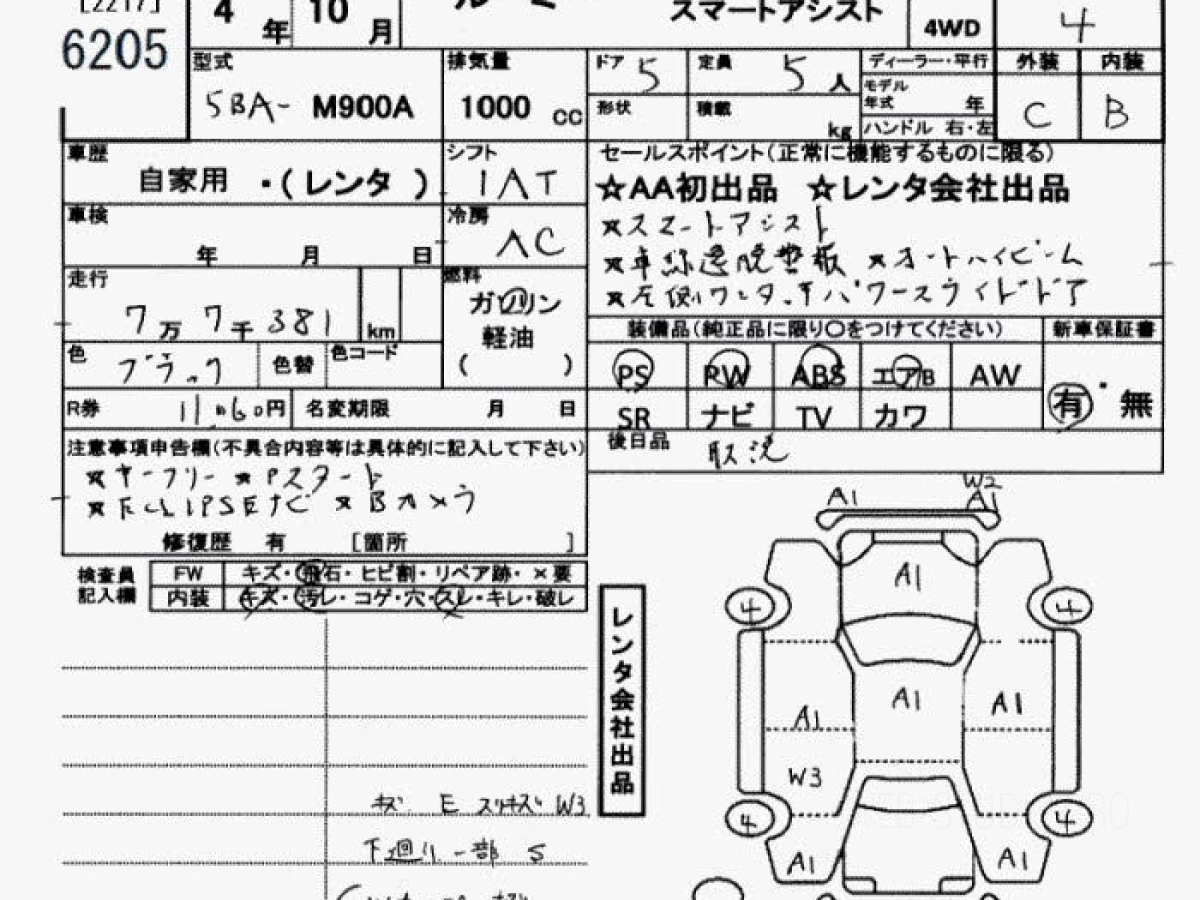 [2217]
6205
4 年 10 月
スマートアシスト
4WD
4
型式
5BA- M900A
排気量
1000 cc
ドア 5
定員 5 人
形状
積載 kg
ディーラー・平行
モデル年式 年
ハンドル 右・左
外装 内装
C B
車歴
自家用 ・( レンタ )
シフト
IAT
車検
年 月 日
冷房
AC
走行
7万 7千 381 km
燃料
ガソリン
軽油
( )
色
ブラック
色替
色コード
R券 円
名変期限 月 日
セールスポイント(正常に機能するものに限る)
☆AA初出品 ☆レンタ会社出品
★スマートアシスト
★車線逸脱警報 ★オートハイビーム
★左側ワンタッチパワースライドドア
装備品(純正品に限り〇をつけてください)
新車保証書
PS PW ABS エアB AW
SR ナビ TV カワ
有・無
後日品
取説
注意事項申告欄(不具合内容等は具体的に記入して下さい)
★キーフリー ★Pスタート
★ETC ★Bカメラ
修復歴 有 [箇所 ]
検査員
記入欄
FW キズ・飛石・ヒビ割・リペア跡・×要
内装 キズ・汚レ・コゲ・穴・スレ・キレ・破レ
キズ E スリキズ W3
下廻り 一部 S
レンタ会社出品
A1
W2
A1
A1
4
4
A1
A1
A1
W3
4
4
A1
A1